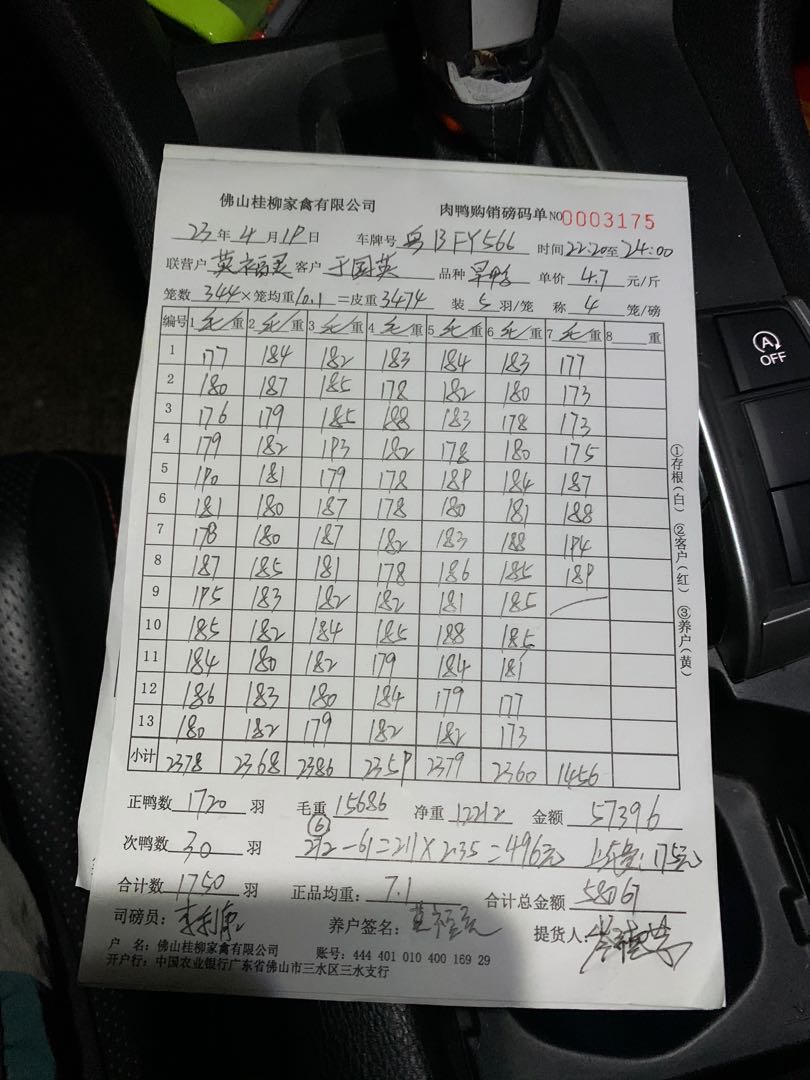 佛山桂柳家禽有限公司 肉鸭购销磅码单 NO 0003175
23年4月19日 车牌号 粤BFY566 时间22:20至24:00
联营户 莫福灵 客户 于国英 品种 旱鸭 单价 4.7 元/斤
笼数 344×笼均重10.1=皮重3474 装 5 羽/笼 称 4 笼/磅
编号 1 毛/重 2 毛/重 3 毛/重 4 毛/重 5 毛/重 6 毛/重 7 毛/重 8 重
1 177 184 182 183 184 183 177
2 180 187 185 178 182 180 173
3 176 179 185 188 183 178 173
4 179 182 193 182 178 180 175
5 190 181 179 178 189 184 187
6 181 180 187 178 180 181 188
7 178 180 187 182 183 188 194
8 187 185 181 178 186 185 189
9 195 183 182 182 181 185
10 185 182 184 185 188 185
11 184 180 182 179 184 181
12 186 183 180 184 179 177
13 180 182 179 182 182 173
小计 2378 2368 2386 2359 2379 2360 1456
正鸭数 1720 羽 毛重 15686 净重 12212 金额 57396
⑥
次鸭数 30 羽 272-61=211×2.35=496元 175元
合计数 1750 羽 正品均重: 7.1 合计总金额 58067
司磅员: 养户签名: 提货人:
户 名: 佛山桂柳家禽有限公司 账号: 444 401 010 400 169 29
开户行: 中国农业银行广东省佛山市三水区三水支行
①存根(白) ②客户(红) ③养户(黄)
A
OFF